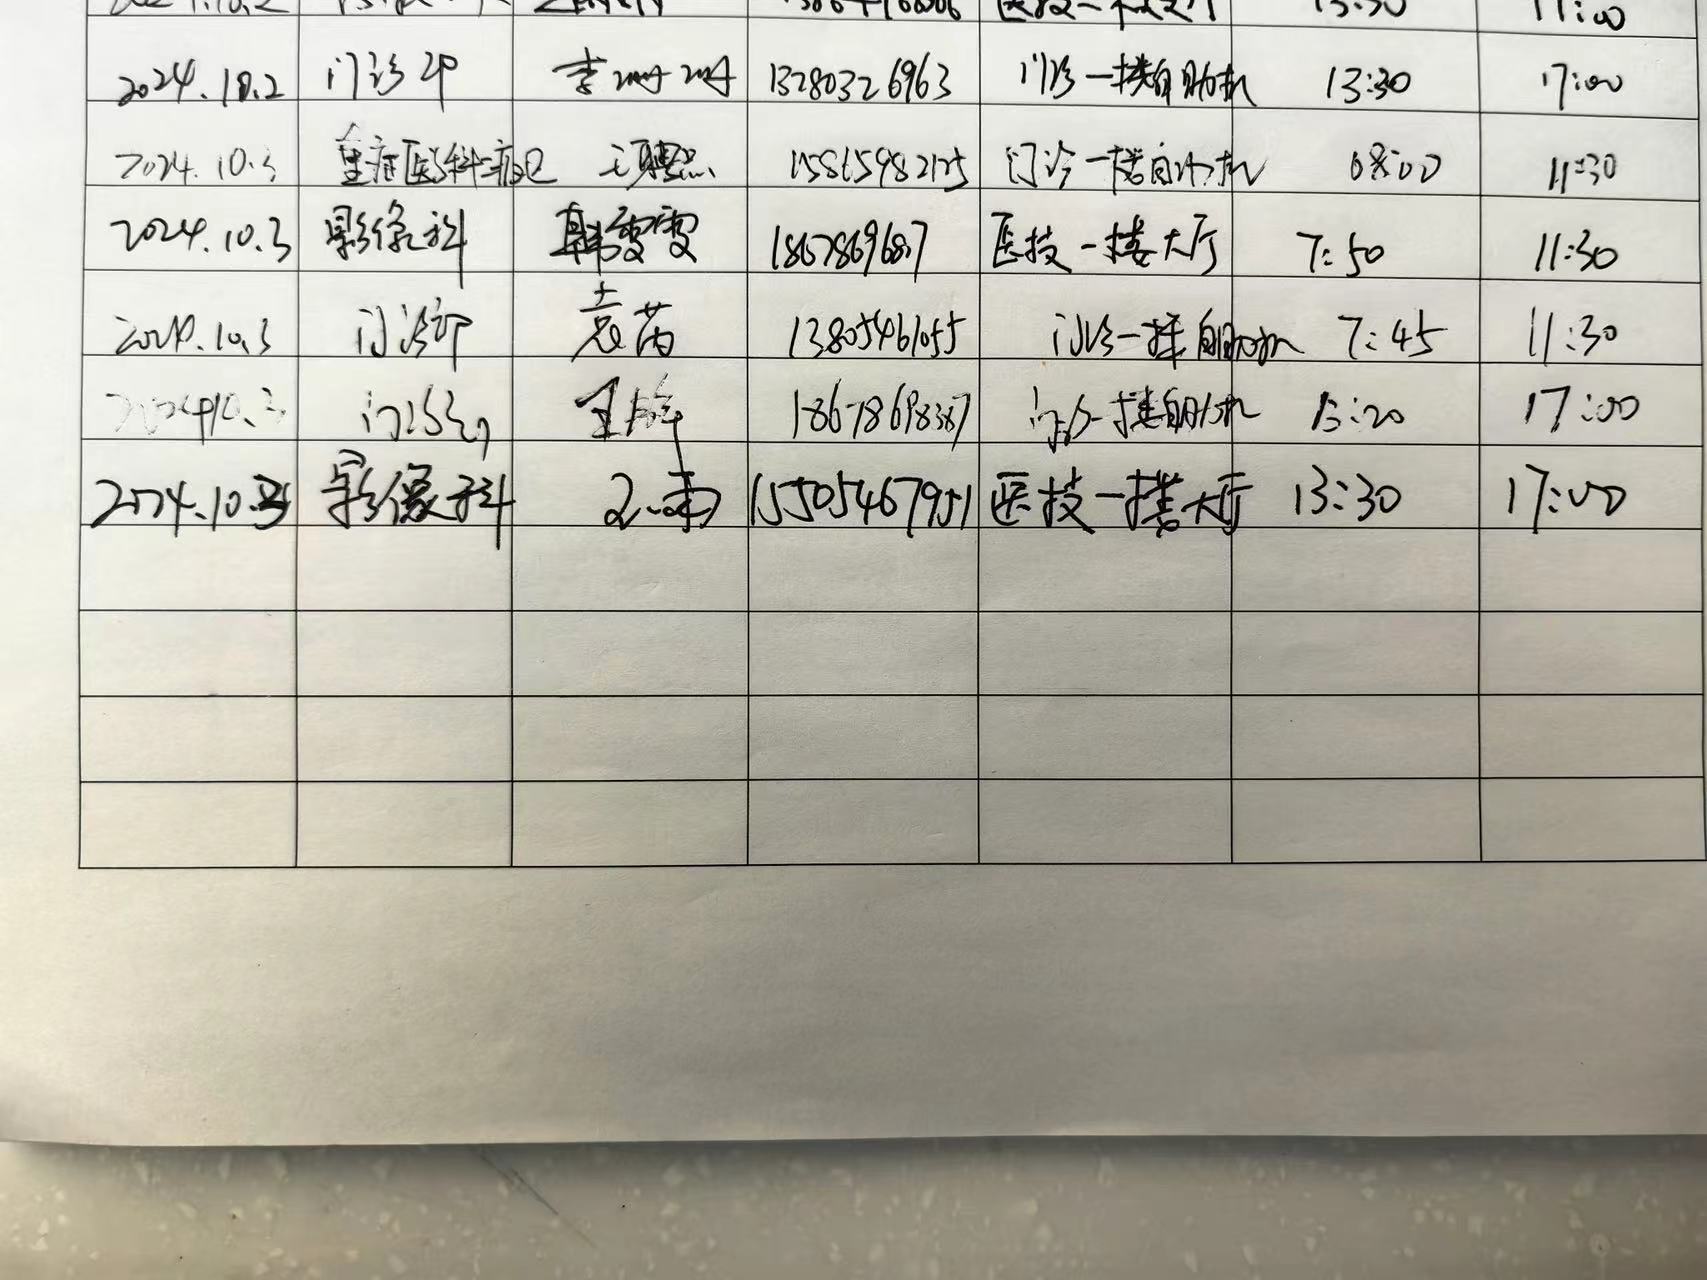 13:30 17:00
2024.10.2 门诊部 李珊珊 13280326963 门诊一楼自助机 13:30 17:00
2024.10.3 重症医学科二病区 15865982125 门诊一楼自助机 08:00 11:30
2024.10.3 影像科 韩雯雯 医技一楼大厅 7:50 11:30
2024.10.3 门诊部 袁芮 13805461055 门诊一楼自助机 7:45 11:30
2024.10.3 门诊部 18678698387 门诊一楼自助机 13:20 17:00
2024.10.3 影像科 15505467951 医技一楼大厅 13:30 17:00